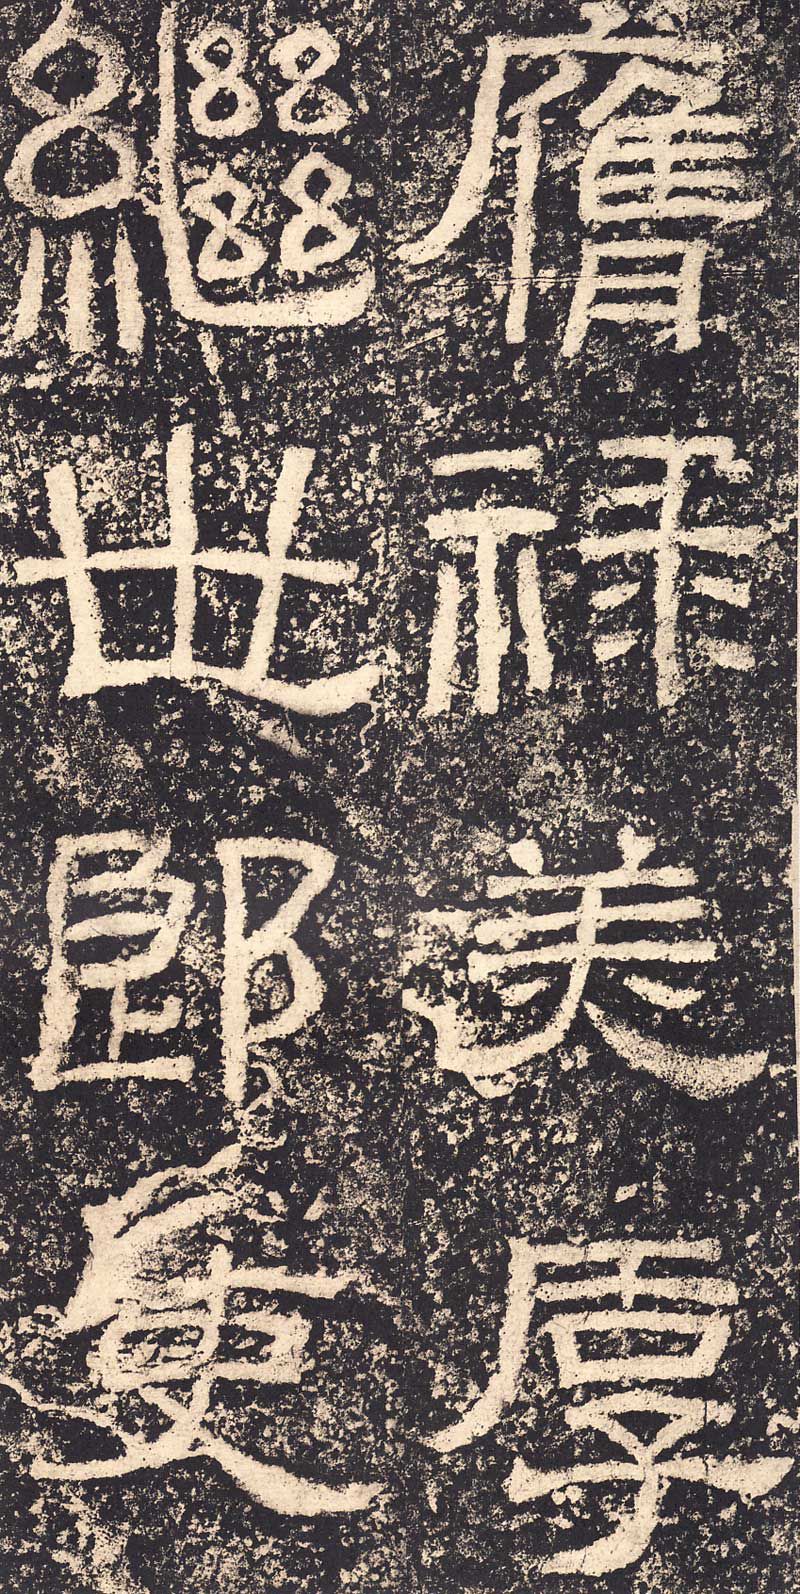 膺祿美厚
繼世郎吏